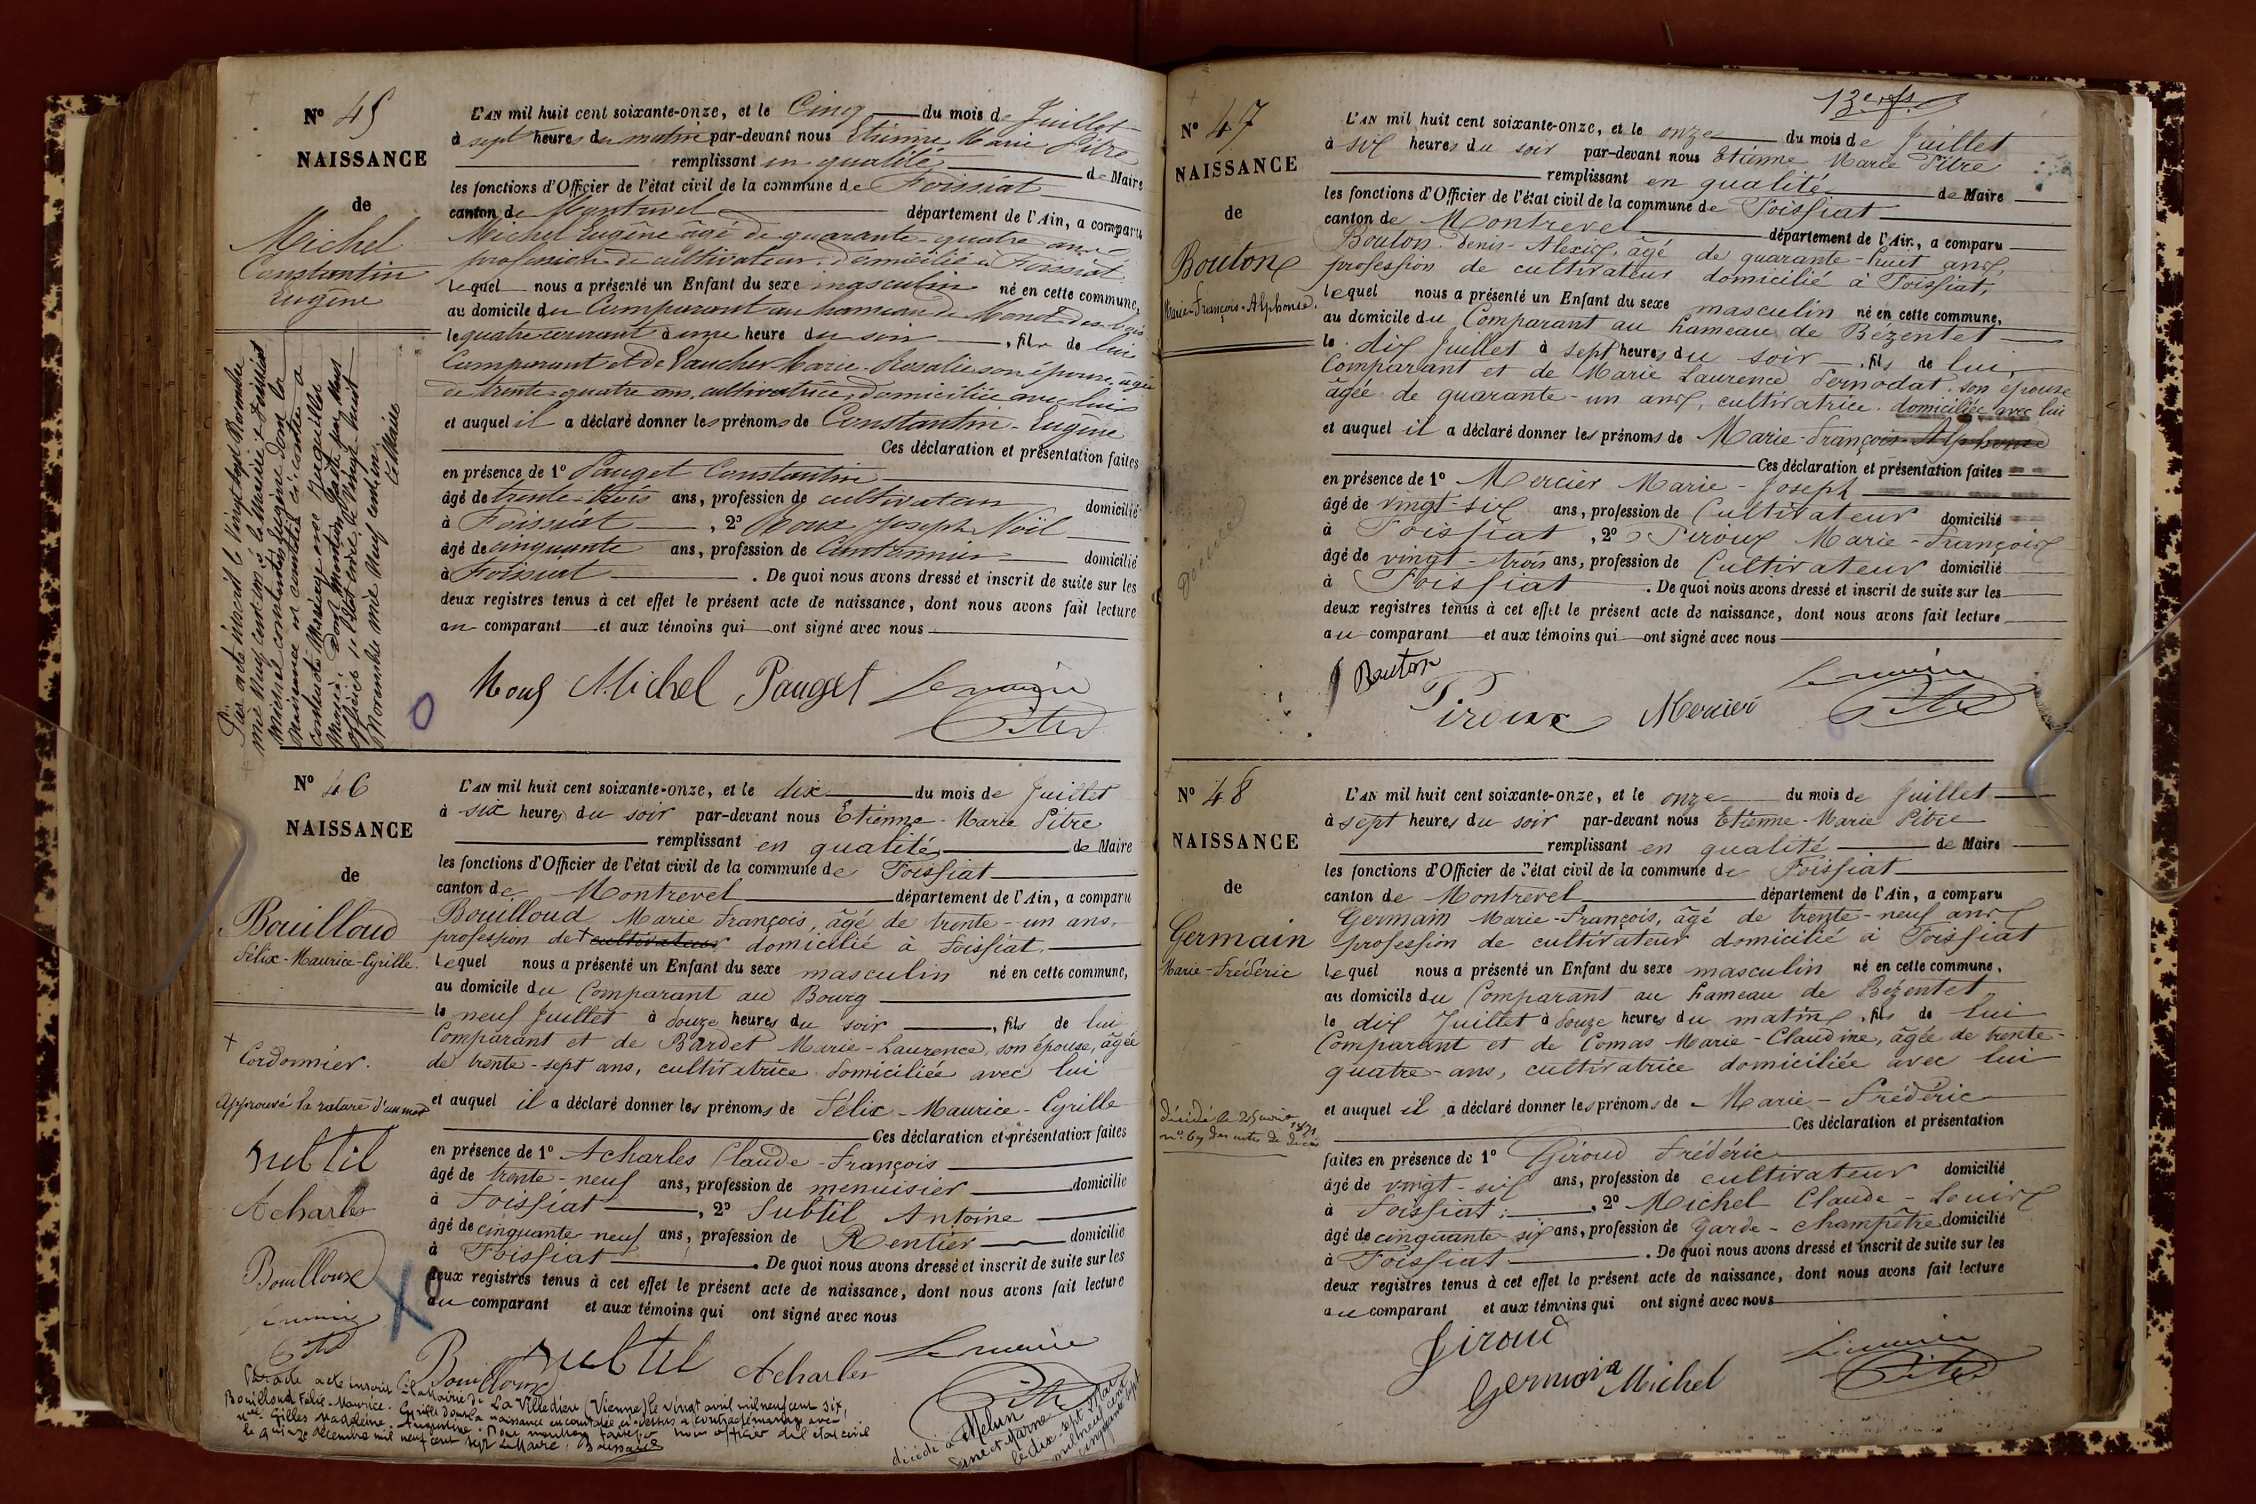 N° 45
NAISSANCE
de
Michel
Constantin
Eugène
L'AN mil huit cent soixante-onze, et le Cinq du mois de Juillet
à sept heures du matin par-devant nous Etienne Marie Pitre
remplissant en qualité de Maire
les fonctions d'Officier de l'état civil de la commune de Foissiat
canton de Montrevel département de l'Ain, a comparu
Michel Eugène âgé de quarante-quatre ans
profession de cultivateur domicilié à Foissiat
lequel nous a présenté un Enfant du sexe masculin né en cette commune,
au domicile du Comparant au hameau de
le quatre courant à onze heure du soir, fils de lui
Comparant et de Vaucher Marie-Rosalie son épouse, âgée
de trente-quatre ans, cultivatrice, domiciliée avec lui
et auquel il a déclaré donner les prénoms de Constantin-Eugène
Ces déclaration et présentation faites
en présence de 1° Pauget Constantin
âgé de trente-trois ans, profession de cultivateur domicilié
à Foissiat, 2° Joseph Noël
âgé de cinquante ans, profession de Cantonnier domicilié
à Foissiat. De quoi nous avons dressé et inscrit de suite sur les
deux registres tenus à cet effet le présent acte de naissance, dont nous avons fait lecture
au comparant et aux témoins qui ont signé avec nous
Michel Pauget Le maire
Pitre
Par acte inscrit le Vingt sept Novembre
mil neuf cent un à la Mairie de
Michel Constantin Eugène dont la
Naissance est constatée ci-contre a
contracté Mariage avec
officier de l'état civil, le Vingt-huit
Novembre mil neuf cent un.
Le Maire
N° 46
NAISSANCE
de
Bouilloud
Félix-Maurice-Cyrille.
L'AN mil huit cent soixante-onze, et le dix du mois de Juillet
à six heures du soir par-devant nous Etienne-Marie Pitre
remplissant en qualité de Maire
les fonctions d'Officier de l'état civil de la commune de Foissiat
canton de Montrevel département de l'Ain, a comparu
Bouilloud Marie François, âgé de trente-un ans,
profession de + cultivateur domicilié à Foissiat.
Lequel nous a présenté un Enfant du sexe masculin né en cette commune,
au domicile du Comparant au Bourg
le neuf Juillet à douze heures du soir, fils de lui
Comparant et de Bardet Marie-Laurence, son épouse, âgée
de trente-sept ans, cultivatrice domiciliée avec lui
et auquel il a déclaré donner les prénoms de Félix-Maurice-Cyrille
Ces déclaration et présentation faites
en présence de 1° Acharles Claude-François
âgé de trente-neuf ans, profession de menuisier domicilié
à Foissiat, 2° Subtil Antoine
âgé de cinquante neuf ans, profession de Rentier domicilié
à Foissiat. De quoi nous avons dressé et inscrit de suite sur les
deux registres tenus à cet effet le présent acte de naissance, dont nous avons fait lecture
au comparant et aux témoins qui ont signé avec nous
Bouilloud Subtil Acharles Le maire
Pitre
+
Cordonnier.
Approuvé la rature d'un mot
Subtil
Acharles
Bouilloud
Le maire
Pitre
Par acte inscrit à la Mairie de La Villedieu (Vienne) le vingt avril mil neuf cent six,
Bouilloud Félix-Maurice-Cyrille dont la naissance est constatée ci-dessus a contracté mariage avec
Gilles Madeleine-Augustine. Dont mention faite par nous officier de l'état civil
le quinze décembre mil neuf cent sept Le Maire:
décédé à Melun
Seine et Marne
le dix-sept Mai
mil neuf cent
cinquante sept
13e
N° 47
NAISSANCE
de
Bouton
Marie-François-Alphonse.
L'AN mil huit cent soixante-onze, et le onze du mois de Juillet
à six heures du soir par-devant nous Etienne Marie Pitre
remplissant en qualité de Maire
les fonctions d'Officier de l'état civil de la commune de Foissiat
canton de Montrevel département de l'Ain, a comparu
Bouton Denis-Alexis, âgé de quarante-huit ans,
profession de cultivateur domicilié à Foissiat,
lequel nous a présenté un Enfant du sexe masculin né en cette commune,
au domicile du Comparant au hameau de Bézentet
le dix Juillet à sept heures du soir, fils de lui,
Comparant et de Marie Laurence Pernodat son épouse
âgée de quarante-un ans, cultivatrice domiciliée avec lui
et auquel il a déclaré donner les prénoms de Marie-François-Alphonse
Ces déclaration et présentation faites
en présence de 1° Mercier Marie-Joseph
âgé de vingt-six ans, profession de Cultivateur domicilié
à Foissiat, 2° Piroux Marie-François
âgé de vingt-trois ans, profession de Cultivateur domicilié
à Foissiat. De quoi nous avons dressé et inscrit de suite sur les
deux registres tenus à cet effet le présent acte de naissance, dont nous avons fait lecture
au comparant et aux témoins qui ont signé avec nous
Bouton Piroux Mercier Le maire
Pitre
N° 48
NAISSANCE
de
Germain
Marie-Frédéric
L'AN mil huit cent soixante-onze, et le onze du mois de Juillet
à sept heures du soir par-devant nous Etienne-Marie Pitre
remplissant en qualité de Maire
les fonctions d'Officier de l'état civil de la commune de Foissiat
canton de Montrevel département de l'Ain, a comparu
Germain Marie-François, âgé de trente-neuf ans
profession de cultivateur domicilié à Foissiat
lequel nous a présenté un Enfant du sexe masculin né en cette commune,
au domicile du Comparant au hameau de Bézentet
le dix Juillet à douze heures du matin, fils de lui
Comparant et de Comas Marie-Claudine, âgée de trente-
quatre-ans, cultivatrice domiciliée avec lui
et auquel il a déclaré donner les prénoms de Marie-Frédéric
Ces déclaration et présentation
faites en présence de 1° Giroud Frédéric
âgé de vingt-six ans, profession de cultivateur domicilié
à Foissiat, 2° Michel Claude-Louis
âgé de cinquante-six ans, profession de Garde-champêtre domicilié
à Foissiat. De quoi nous avons dressé et inscrit de suite sur les
deux registres tenus à cet effet le présent acte de naissance, dont nous avons fait lecture
au comparant et aux témoins qui ont signé avec nous
Giroud
Germain Michel Le maire
Pitre
décédé le 25
1871
n° 69 des actes de décès